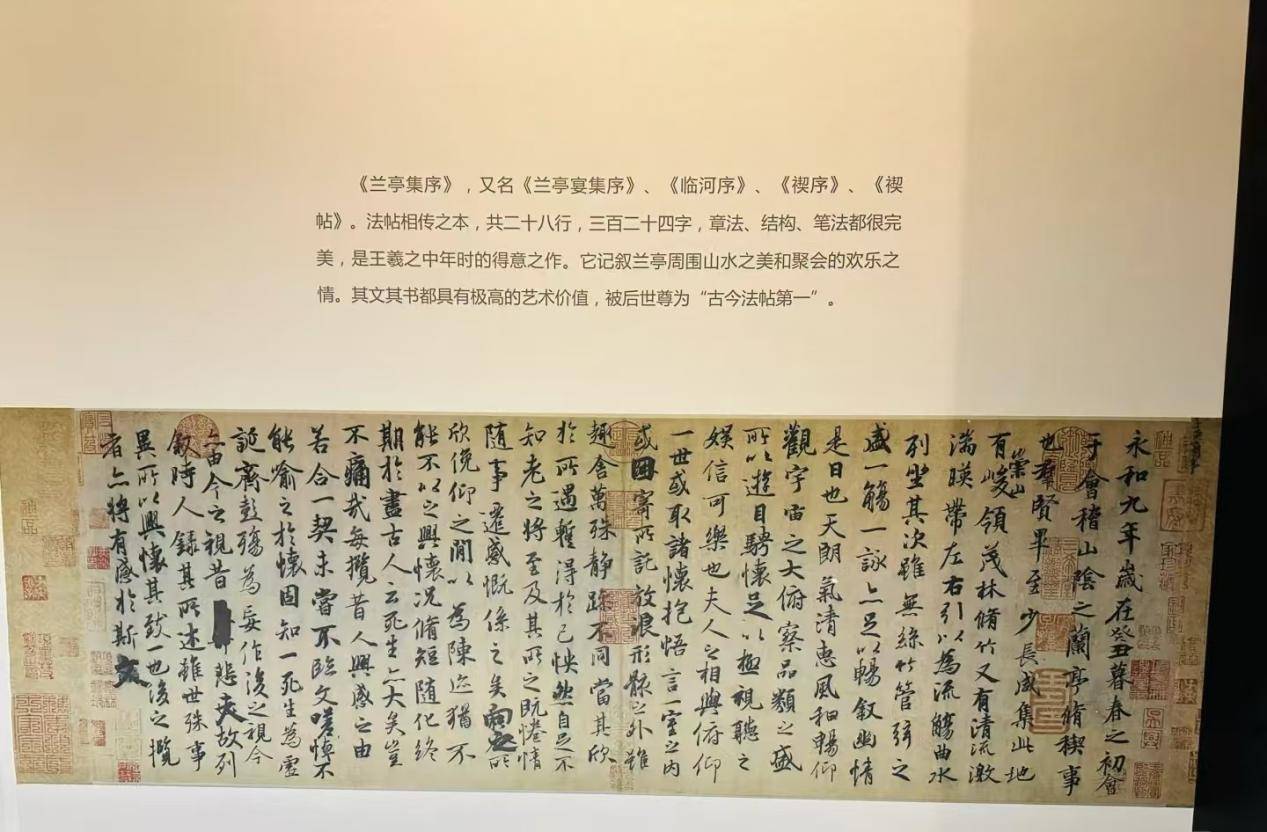 《兰亭集序》，又名《兰亭宴集序》、《临河序》、《禊序》、《禊
帖》。法帖相传之本，共二十八行，三百二十四字，章法、结构、笔法都很完
美，是王羲之中年时的得意之作。它记叙兰亭周围山水之美和聚会的欢乐之
情。其文其书都具有极高的艺术价值，被后世尊为“古今法帖第一”。
永和九年歲在癸丑暮春之初會
于會稽山陰之蘭亭脩禊事
也羣賢畢至少長咸集此地
有崇山峻領茂林脩竹又有清流激
湍暎帶左右引以為流觴曲水
列坐其次雖無絲竹管弦之
盛一觴一詠亦足以暢敘幽情
是日也天朗氣清惠風和暢仰
觀宇宙之大俯察品類之盛
所以遊目騁懷足以極視聽之
娛信可樂也夫人之相與俯仰
一世或取諸懷抱悟言一室之內
或因寄所託放浪形骸之外雖
趣舍萬殊靜躁不同當其欣
於所遇蹔得於己怏然自足不
知老之將至及其所之既惓情
隨事遷感慨係之矣向之所
欣俛仰之閒以為陳迹猶不
能不以之興懷況脩短隨化終
期於盡古人云死生亦大矣豈
不痛哉每攬昔人興感之由
若合一契未嘗不臨文嗟悼不
能喻之於懷固知一死生為虛
誕齊彭殤為妄作後之視今
亦由今之視昔悲夫故列
敘時人錄其所述雖世殊事
異所以興懷其致一也後之攬
者亦將有感於斯文